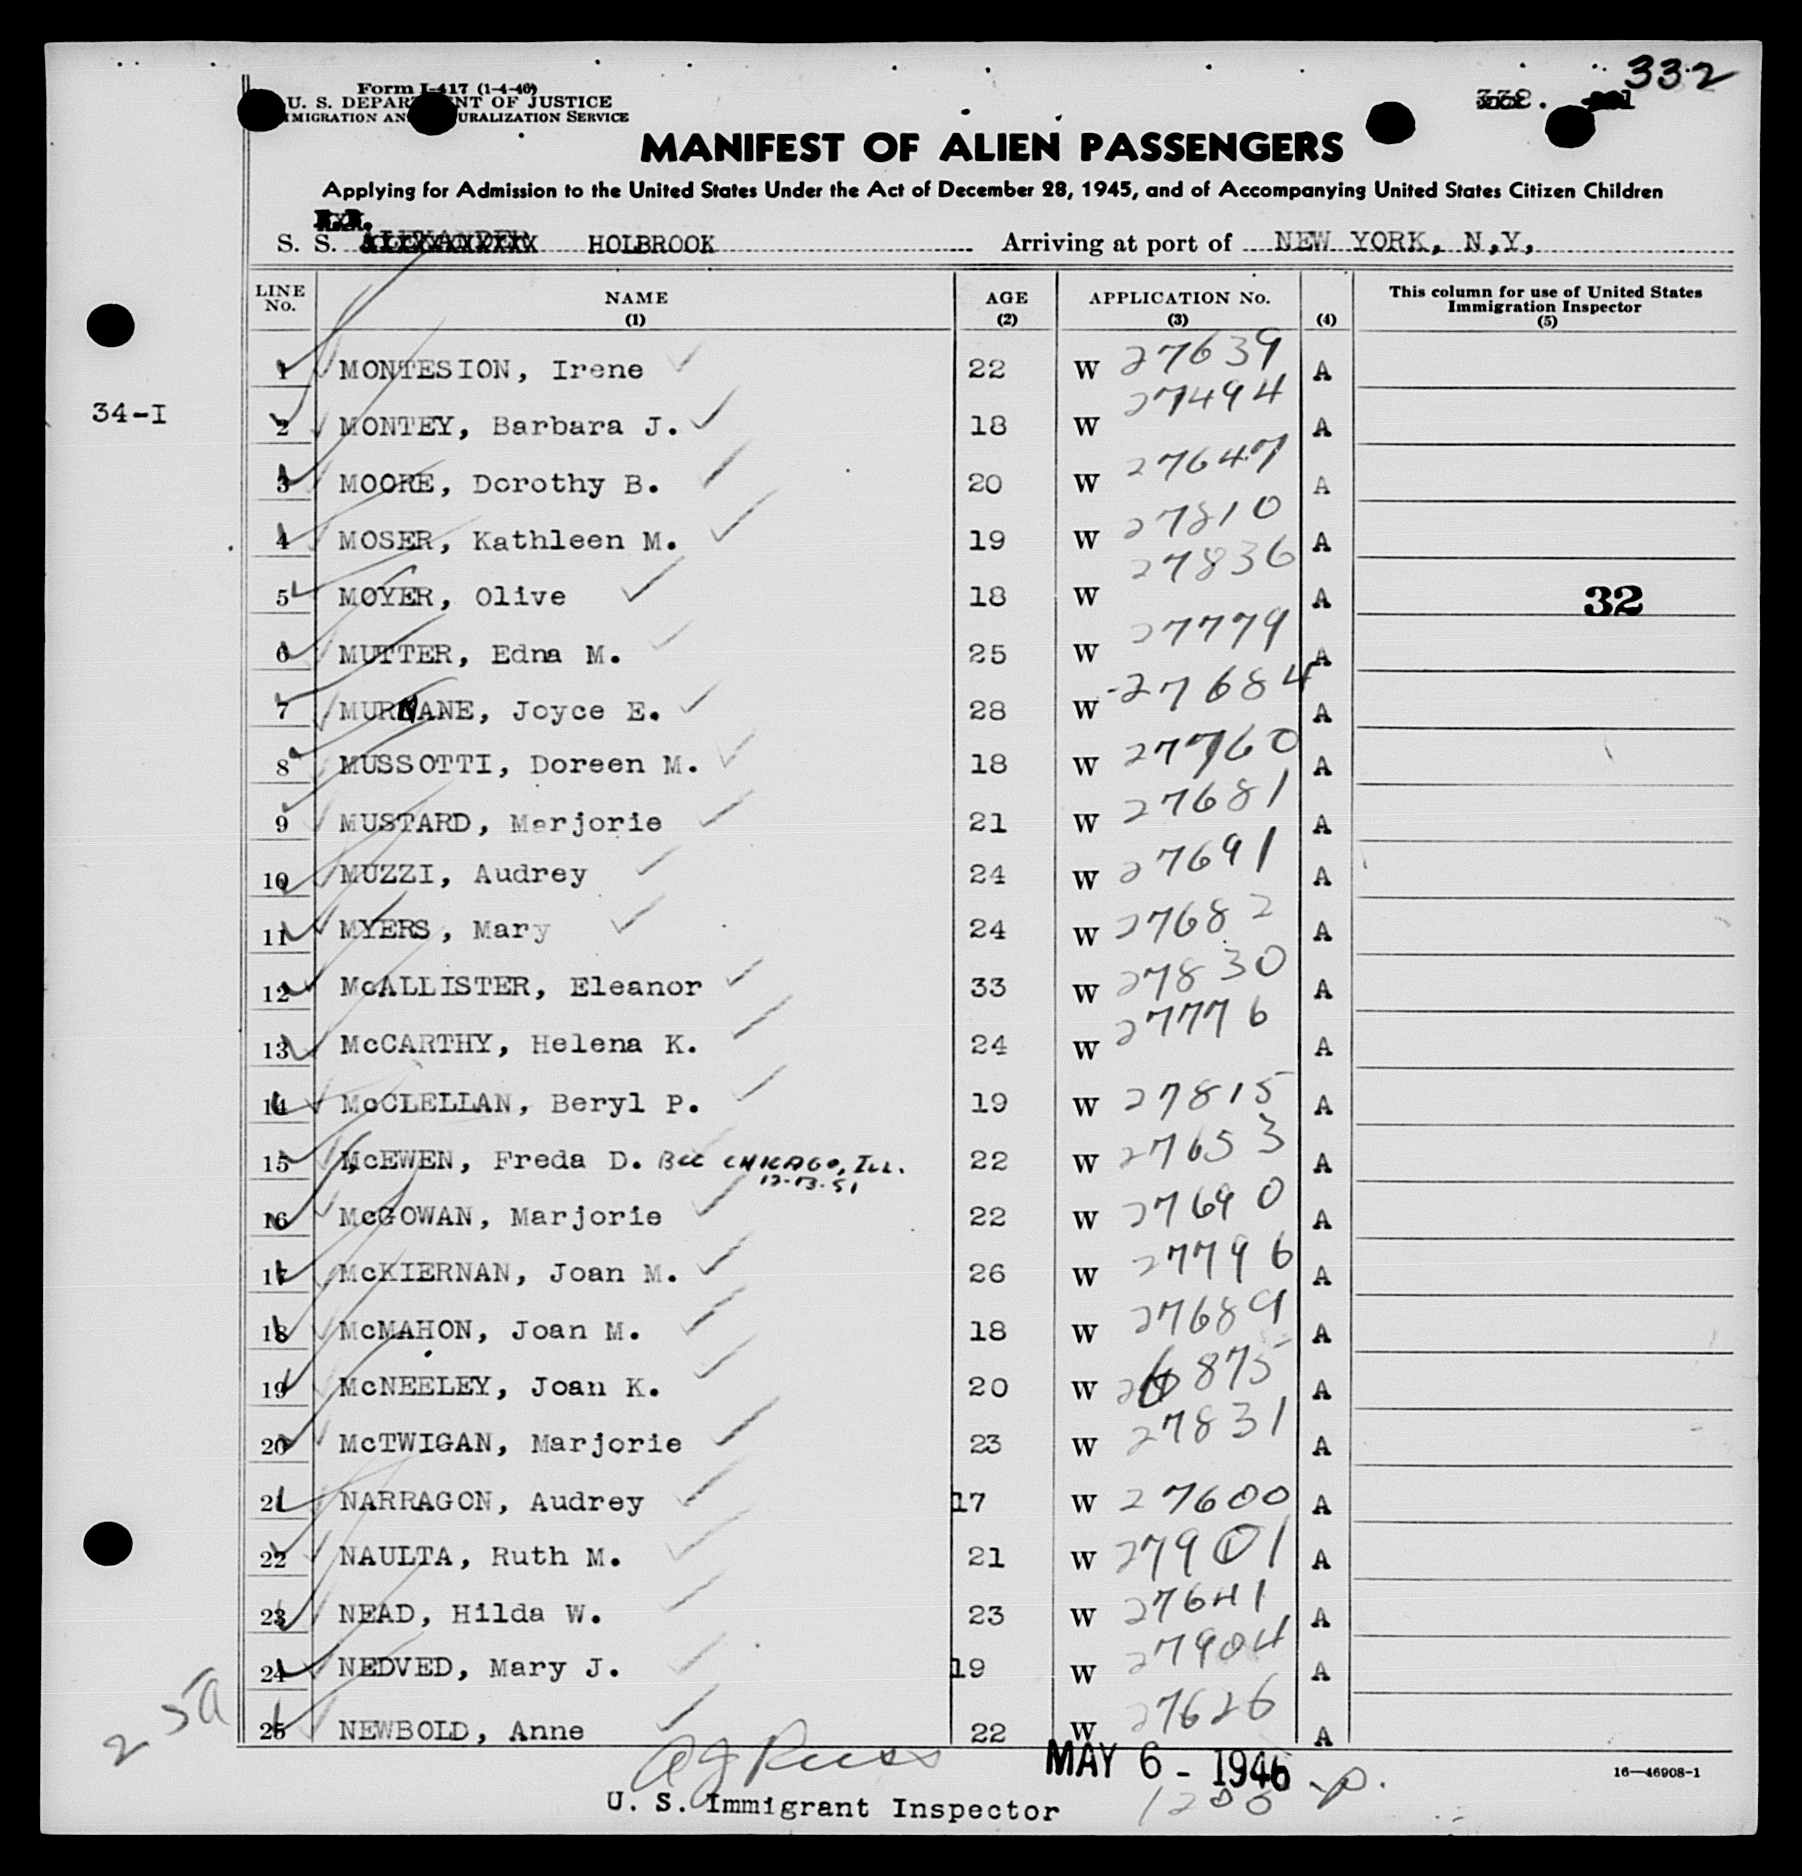 332
Form I-417 (1-4-46)
U. S. DEPARTMENT OF JUSTICE
IMMIGRATION AND NATURALIZATION SERVICE
332.
MANIFEST OF ALIEN PASSENGERS
Applying for Admission to the United States Under the Act of December 28, 1945, and of Accompanying United States Citizen Children
S. S. ALEXANDER HOLBROOK Arriving at port of NEW YORK, N,Y,
LINE No. NAME (1) AGE (2) APPLICATION No. (3) (4) This column for use of United States Immigration Inspector (5)
1 MONTESION, Irene 22 W 27639 A
34-I
2 MONTEY, Barbara J. 18 W 27494 A
3 MOORE, Dorothy B. 20 W 27647 A
4 MOSER, Kathleen M. 19 W 27810 A
5 MOYER, Olive 18 W 27836 A 32
6 MUTTER, Edna M. 25 W 27779 A
7 MURNANE, Joyce E. 28 W 27684 A
8 MUSSOTTI, Doreen M. 18 W 27760 A
9 MUSTARD, Marjorie 21 W 27681 A
10 MUZZI, Audrey 24 W 27691 A
11 MYERS, Mary 24 W 27682 A
12 McALLISTER, Eleanor 33 W 27830 A
13 McCARTHY, Helena K. 24 W 27776 A
14 McCLELLAN, Beryl P. 19 W 27815 A
15 McEWEN, Freda D. CHICAGO, ILL. 22 W 27653 A
12-13-51
16 McGOWAN, Marjorie 22 W 27690 A
17 McKIERNAN, Joan M. 26 W 27796 A
18 McMAHON, Joan M. 18 W 27689 A
19 McNEELEY, Joan K. 20 W 26875 A
20 McTWIGAN, Marjorie 23 W 27831 A
21 NARRAGON, Audrey 17 W 27600 A
22 NAULTA, Ruth M. 21 W 27901 A
23 NEAD, Hilda W. 23 W 27641 A
24 NEDVED, Mary J. 19 W 27904 A
25 NEWBOLD, Anne 22 W 27626 A
MAY 6 - 1946
16—46908-1
U. S. Immigrant Inspector